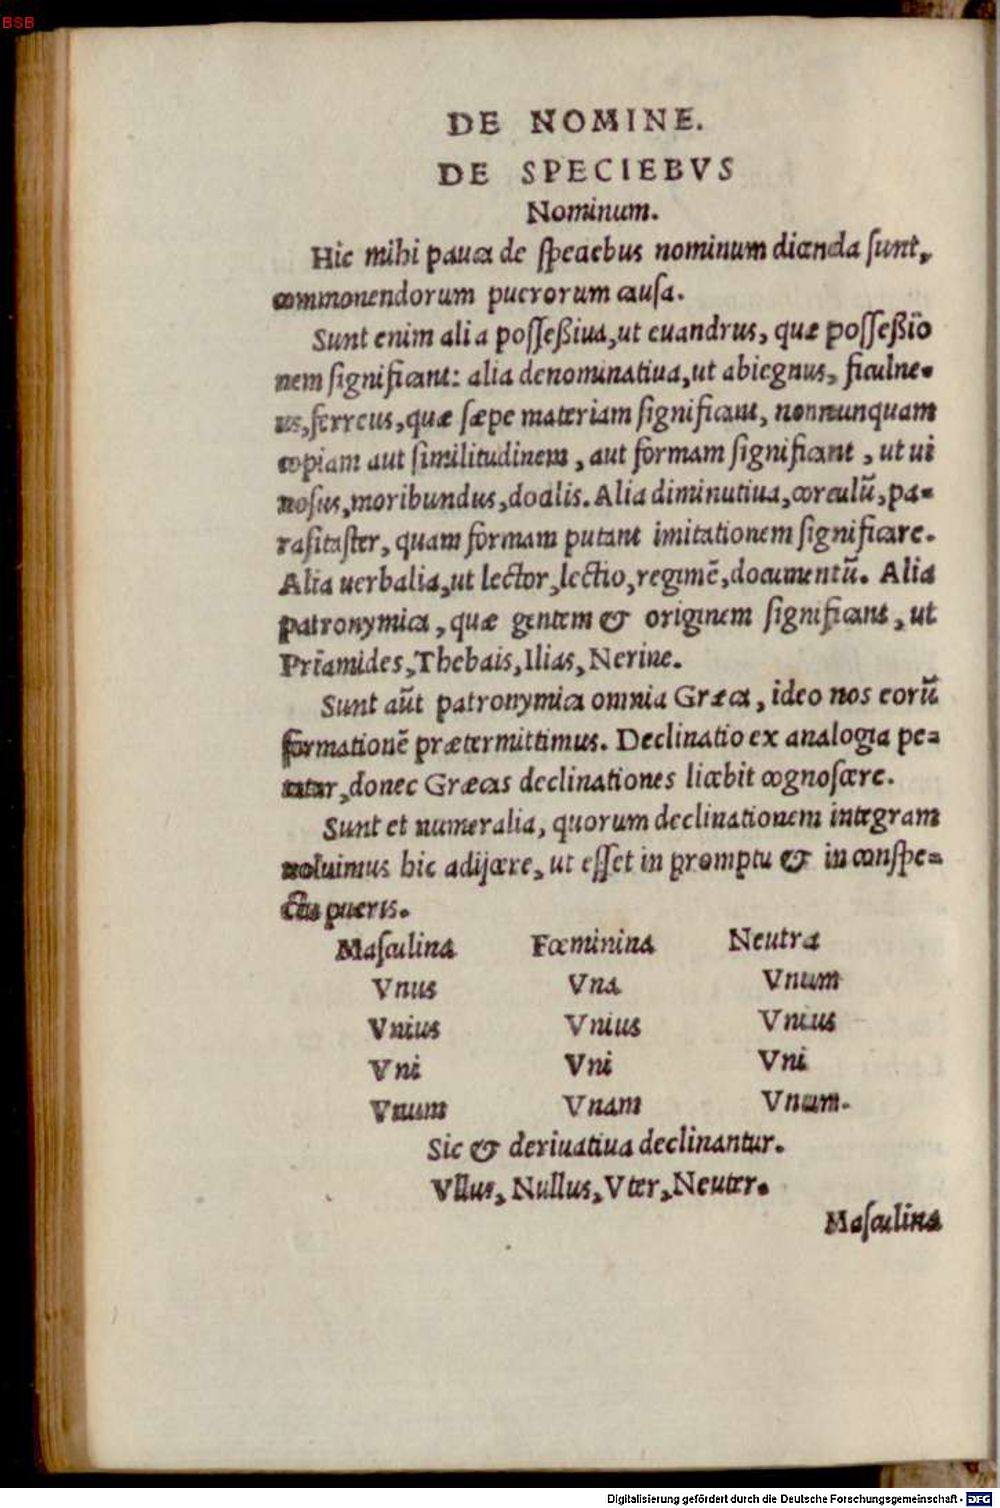 BSB
DE NOMINE.
DE SPECIEBVS
Nominum.
Hic mihi pauca de speciebus nominum dicenda sunt,
commonendorum puerorum causa.
Sunt enim alia possessiua, ut euandrus, quæ possessio
nem significant: alia denominatiua, ut abiegnus, ficulne-
us, ferreus, quæ sæpe materiam significant, nonnunquam
copiam aut similitudinem, aut formam significant, ut ui
nosus, moribundus, docilis. Alia diminutiua, corculũ, pa-
rasitaster, quam formam putant imitationem significare.
Alia uerbalia, ut lector, lectio, regimẽ, documentũ. Alia
patronymica, quæ gentem & originem significant, ut
Priamides, Thebais, Ilias, Nerine.
Sunt aũt patronymica omnia Græca, ideo nos eorũ
formationẽ prætermittimus. Declinatio ex analogia pe-
tatur, donec Græcas declinationes licebit cognoscere.
Sunt et numeralia, quorum declinationem integram
uoluimus hic adijcere, ut esset in promptu & in conspe-
ctu pueris.
Masculina Fœminina Neutra
Vnus Vna Vnum
Vnius Vnius Vnius
Vni Vni Vni
Vnum Vnam Vnum.
Sic & deriuatiua declinantur.
Vllus, Nullus, Vter, Neuter.
Masculina
Digitalisierung gefördert durch die Deutsche Forschungsgemeinschaft - DFG